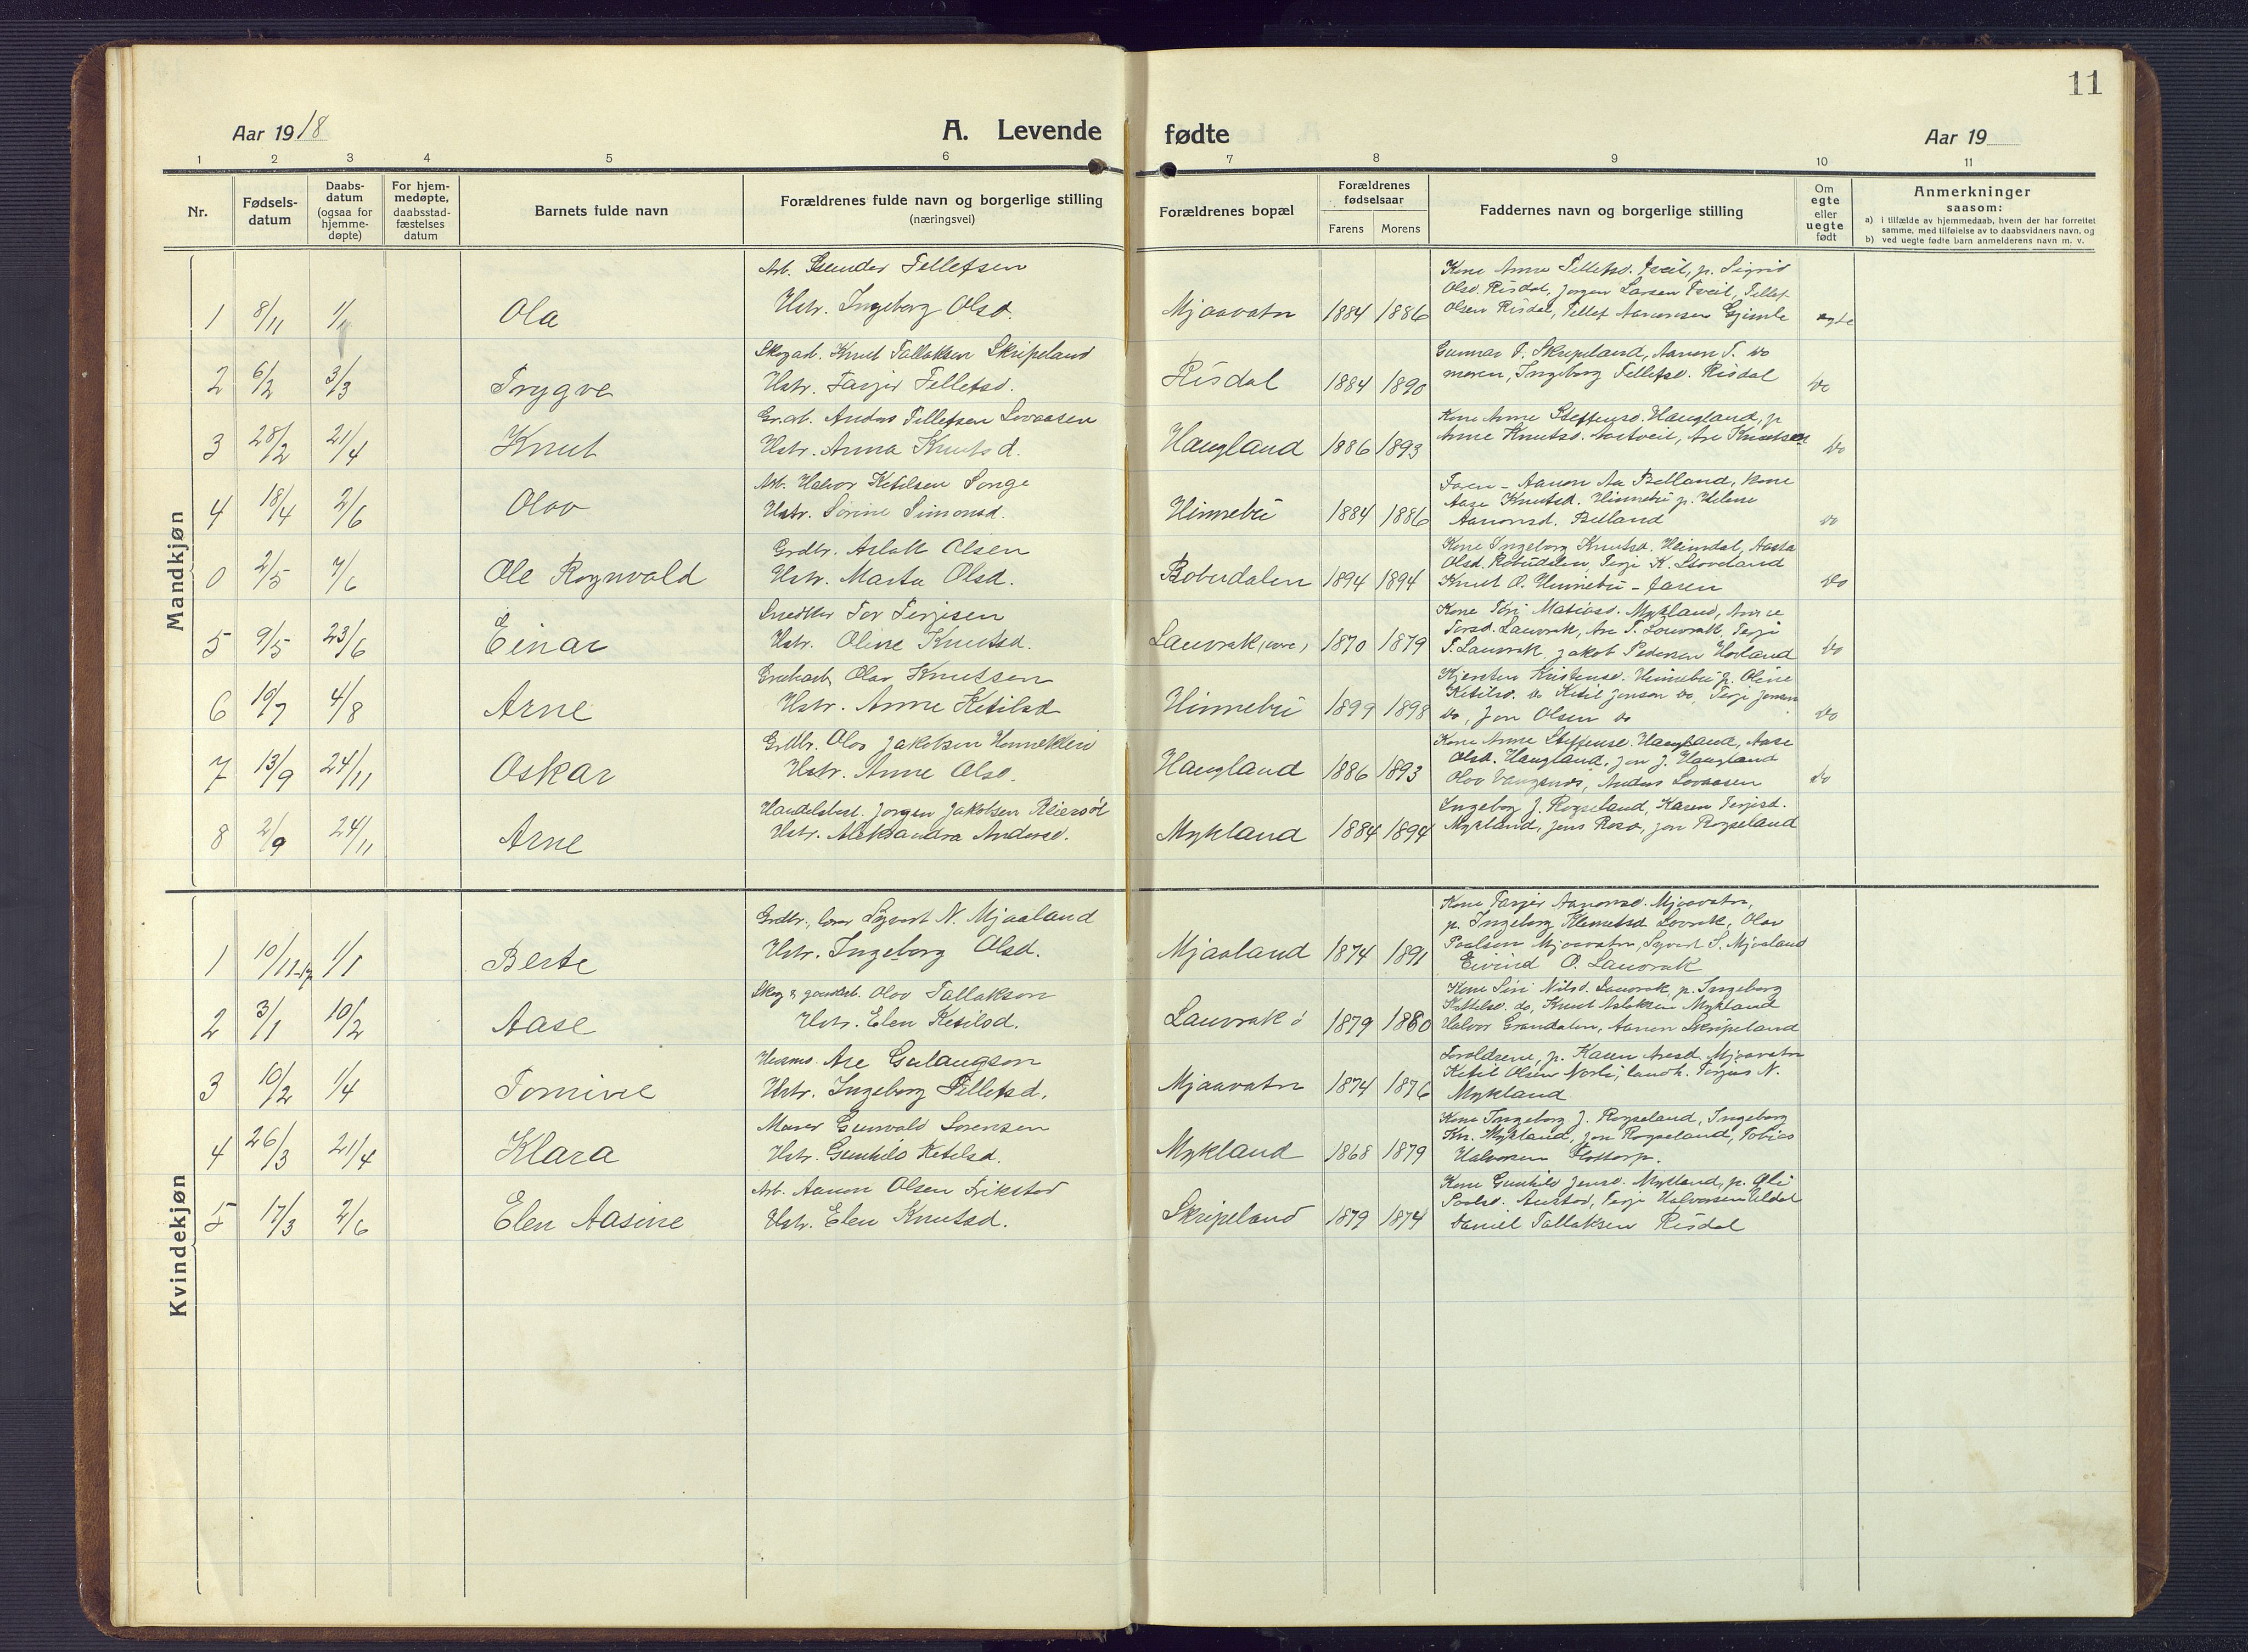 11
Aar 1918
A. Levende fødte
Aar 19
1 2 3 4 5 6 7 8 9 10 11
Nr.
Fødsels-
datum
Daabs-
datum
(ogsaa for
hjemme-
døpte)
For hjem-
medøpte,
daabsstad-
fæstelses
datum
Barnets fulde navn
Forældrenes fulde navn og borgerlige stilling
(næringsvei)
Forældrenes bopæl
Forældrenes
fødselsaar
Farens Morens
Faddernes navn og borgerlige stilling
Om
egte
eller
uegte
født
Anmerkninger
saasom:
a) i tilfælde av hjemmedaab, hvem der har forrettet
samme, med tilføielse av to daabsvidners navn, og
b) ved uegte fødte barn anmelderens navn m. v.
Mandkjøn
Arb. Tellefsen
Kone Anne Tellefsd. Tveit, p. Sigrid
Olsd. Risdal, Jørgen Larsen Tveit, Tellef
1 8/11 1/1 Ola Hstr. Ingeborg Olsd. Mjaavatn 1884 1886 Olsen Risdal, Tellef Aanonsen Gjimle egte
Skogarb. Knut Tallaksen Skripeland
Gunnar T. Skripeland, Aanon T. do
2 6/2 3/3 Trygve Hstr. Tarjer Tellefsd. Risdal 1884 1890 moren, Ingeborg Tellefsd. Risdal do
Gr.arb. Anders Tellefsen Lovaasen
Kone Anne Steffensd. Haugland, p.
3 28/2 21/4 Knut Hstr. Anna Knutsd. Haugland 1886 1893 Anne Knutsd. Austveit, Are Knutsen do
Arb. Halvor Ketilsen Songe
Faren - Aanon Aa Belland, Kone
Aase Knutsd. Hinnebu p. Helene
4 18/4 2/6 Olav Hstr. Sorine Simonsd. Hinnebu 1884 1886 Aanonsd. Belland do
Grdbr. Aslak Olsen
Kone Ingeborg Knutsd. Heimdal, Aasta
Olsd. Robudalen, Terje K. Stoveland
0 2/5 7/6 Ole Rognvald Hstr. Marta Olsd. Bobudalen 1894 1894 Knut O. Hinnebu - faren do
Tor Terjesen
Kone Tori Matiasd. Mykland, Anne
Torsd. Lauvrak, Are T. Lauvrak, Terje
5 9/5 23/6 Einar Hstr. Oline Knutsd. Lauvrak 1870 1879 T. Lauvrak, Jakob Pedersen Hovland do
Olav Knutsen
Kjersten Kristensd. Hinnebu p. Oline
Ketilsd. do Ketil Jensen do, Terje Jensen
6 19/7 4/8 Arne Hstr. Anne Ketilsd Hinnebu 1899 1898 do, Jon Olsen do do
Grdbr. Olav Jakobsen
Kone Anne Steffensd. Haugland, Aase
Olsd. Haugland, Jon J. Haugland
7 13/9 24/11 Oskar Hstr. Anne Olsd. Haugland 1886 1893 Olav Vangsnes, Anders Lovaasen do
Handelsbest. Jorgen Jakobsen Reiersøl
Ingeborg J. Røyseland, Karen Terjesd.
8 2/9 24/11 Arne Hstr. Aleksandra Andersd. Mykland 1884 1894 Mykland, Jens Roso, Jon Røyseland
Kvindekjøn
Grdbr., lærer Sygvert N. Mjaaland
Kone Tarjer Aanonsd. Mjaavatn,
p. Ingeborg Klemetsd Lovrak, Olav
1 10/11-17 1/1 Berte Hstr. Ingeborg Olsd. Mjaaland 1874 1891 Paalsen Mjaavatn, Syvert S. Mjaaland
Eivind O. Lauvrak
Skog & gaardarb. Olav Tallakson
Kone Siri Nilsd. Lauvrak, p. Ingeborg
Kittelsd. do, Knut Aslaksen Mykland
2 3/1 10/2 Aase Hstr. Elen Ketilsd. Lauvrak ø 1879 1880 Halvor Grandalen, Aanon Skripeland
Husmd. Are Gulaugson
Foreldrene, p. Karen Aresd. Mjaavatn
Ketil Olsen Norli, landh. Terjus N.
3 10/2 1/4 Tomine Hstr. Ingeborg Tellefsd. Mjaavatn 1874 1876 Mykland
Murer Gunvald Sorensen
Kone Ingeborg J. Røyseland, Ingeborg
Kn. Mykland, Jon Røyseland, Tobias
4 26/3 21/4 Klara Hstr. Gunhild Ketilsd. Mykland 1868 1879 Halvorsen
Arb. Aanon Olsen Frikstad
Kone Gunhild Jensd. Mykland, p. Oli
Paalsd. Austad, Terje Halvorsen Uldal
5 17/3 2/6 Elen Aasine Hstr. Elen Knutsd. Skripeland 1879 1874 Daniel Tallaksen Risdal